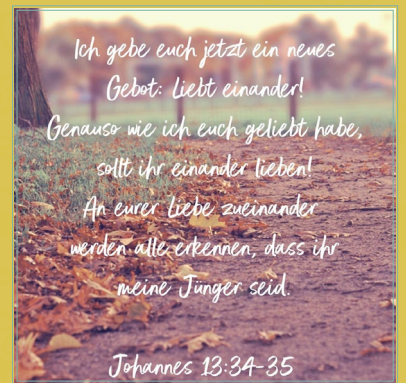 Ich gebe euch jetzt ein neues
Gebot: Liebt einander!
Genauso wie ich euch geliebt habe,
sollt ihr einander lieben!
An eurer Liebe zueinander
werden alle erkennen, dass ihr
meine Jünger seid.
Johannes 13:34-35